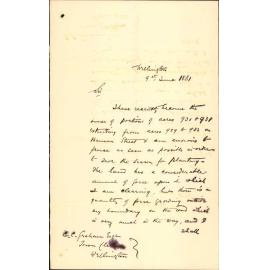 Wellington
9th June 1881
Sir
I have recently become the
owner of portions of acres 931 & 938
extending from acres 929 & 932 on
Hanson Street & am anxious to
fence as soon as possible in order
to save the season for planting.
The land has a considerable
amount of gorse upon it which
I am clearing, but there is a
quantity of gorse growing outside
my boundary on the road which
is very much in the way, and I
shall
C.C. Graham Esqre
Town Clerk
Wellington